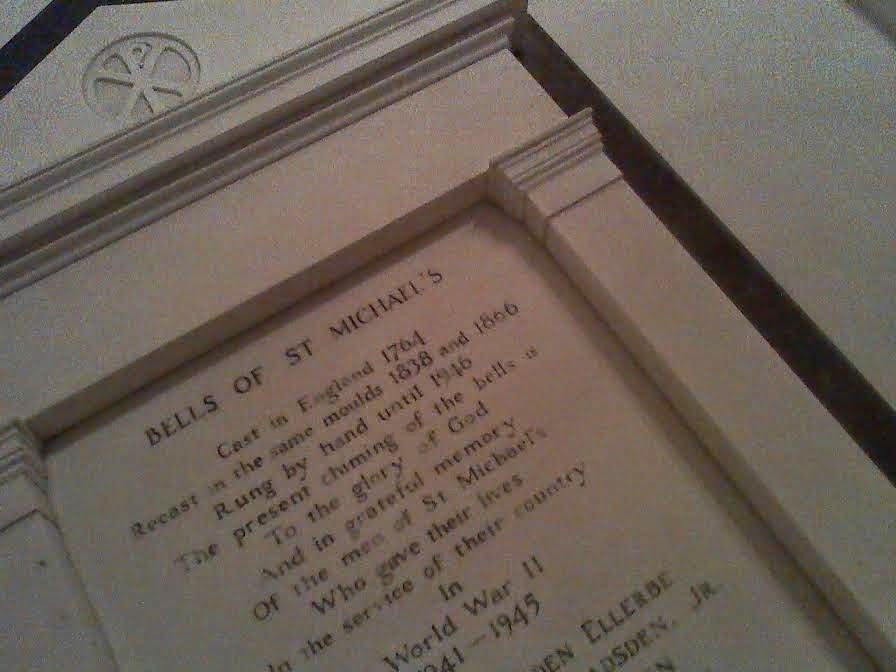 BELLS OF ST MICHAEL'S
Cast in England 1764
Recast in the same moulds 1838 and 1866
Rung by hand until 1946
The present chiming of the bells is
To the glory of God
And in grateful memory
Of the men of St Michael's
Who gave their lives
In the service of their country
In
World War II
1941 – 1945
ELLERBE
JR